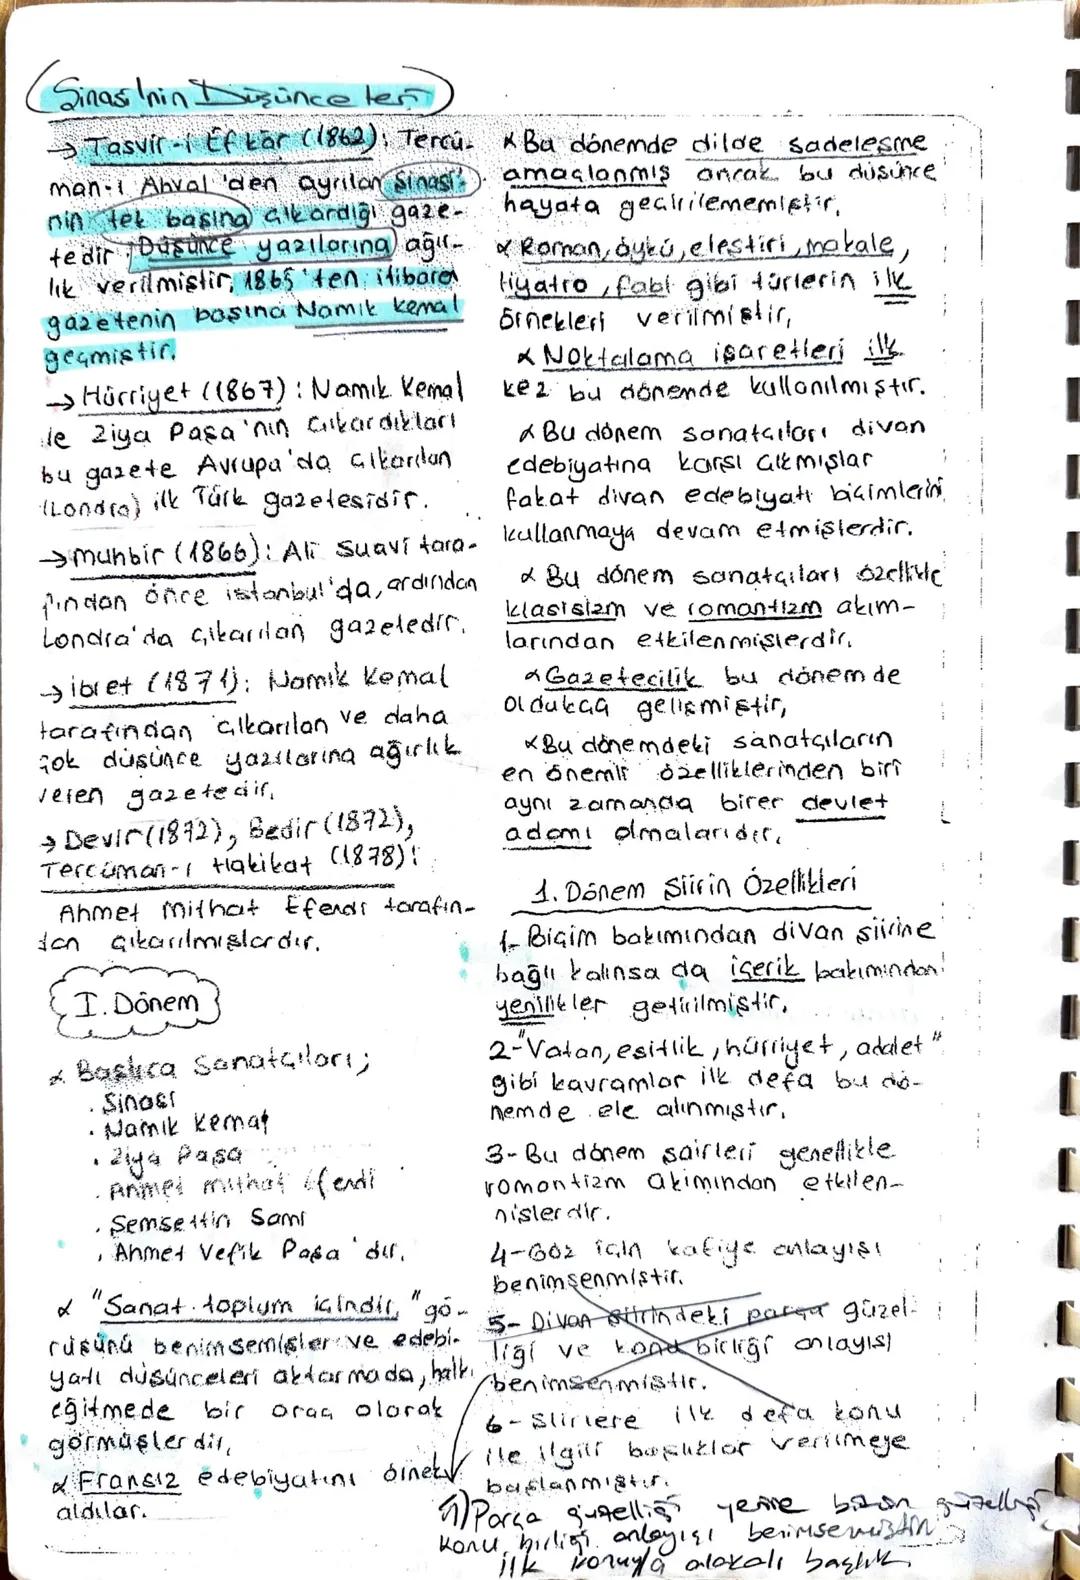 Şinasi'nin Düşünceleri
→ Tasvir-i Efkâr (1862): Tercü-
man-ı Ahval'den ayrılan Şinasi'-
nin tek başına çıkardığı gaze-
tedir. Düşünce yazılarına ağır-
lık verilmiştir, 1865'ten itibaren
gazetenin başına Namık Kemal
geçmiştir.
→ Hürriyet (1867): Namık Kemal
ile Ziya Paşa'nın çıkardıkları
bu gazete Avrupa'da çıkarılan
(Londra) ilk Türk gazetesidir.
→ Muhbir (1866): Ali Suavi tara-
fından önce İstanbul'da, ardından
Londra'da çıkarılan gazetedir.
→ İbret (1871): Namık Kemal
tarafından çıkarılan ve daha
çok düşünce yazılarına ağırlık
veren gazetedir.
→ Devir (1872), Bedir (1872),
Tercüman-ı Hakikat (1878):
Ahmet Mithat Efendi tarafın-
dan çıkarılmışlardır.
I. Dönem
* Başlıca Sanatçıları;
. Şinasi
. Namık Kemal
. Ziya Paşa
. Ahmet Mithat Efendi
. Şemsettin Sami
. Ahmet Vefik Paşa'dır.
* "Sanat toplum içindir," gö-
rüşünü benimsemişler ve edebi-
yatı düşünceleri aktarmada, halkı
eğitmede bir araç olarak
görmüşlerdir,
* Fransız edebiyatını örnek
aldılar.
* Bu dönemde dilde sadeleşme
amaçlanmış ancak bu düşünce
hayata geçirilememiştir.
* Roman, öykü, eleştiri, makale,
tiyatro, fabl gibi türlerin ilk
örnekleri verilmiştir,
* Noktalama işaretleri ilk
kez bu dönemde kullanılmıştır.
* Bu dönem sanatçıları divan
edebiyatına karşı çıkmışlar
fakat divan edebiyatı biçimlerini
kullanmaya devam etmişlerdir.
* Bu dönem sanatçıları özellikle
klasisizm ve romantizm akım-
larından etkilenmişlerdir.
* Gazetecilik bu dönemde
oldukça gelişmiştir,
* Bu dönemdeki sanatçıların
en önemli özelliklerinden biri
aynı zamanda birer devlet
adamı olmalarıdır.
1. Dönem Şiirin Özellikleri
1- Biçim bakımından divan şiirine
bağlı kalınsa da içerik bakımından
yenilikler getirilmiştir.
2- "Vatan, eşitlik, hürriyet, adalet"
gibi kavramlar ilk defa bu dö-
nemde ele alınmıştır.
3- Bu dönem şairleri genellikle
romantizm akımından etkilen-
mişlerdir.
4- Göz için kafiye anlayışı
benimsenmiştir.
5- Divan şiirindeki parça güzel-
liği ve konu birliği anlayışı
benimsenmiştir.
6- Şiirlere ilk defa konu
ile ilgili başlıklar verilmeye
başlanmıştır.
Parça güzelliği yerine bütün güzelliği
konu birliği anlayışı benimsemiştir
ilk konuyla alakalı başlık.